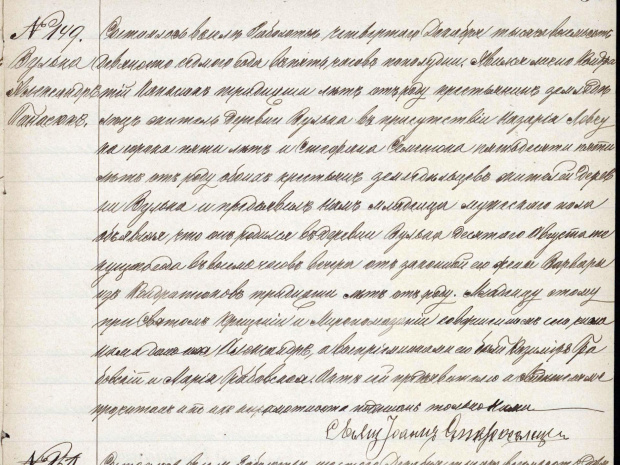 № 149.
Вулька
Александръ
Панасюкъ.
Состоялось въ селѣ Каболоты четвертаго Декабря тысяча восемьсотъ
девяносто седьмого года въ пять часовъ пополудни. Явился лично
Панасюкъ тридцати лѣтъ отъ роду крестьянинъ земледѣ-
лецъ житель деревни Вулька въ присутствіи Назарія
сорока пяти лѣтъ и Стефана Семенюка пятьдесяти пяти
лѣтъ отъ роду обоихъ крестьянъ земледѣльцовъ жителей дерев-
ни Вулька и предъявилъ намъ младенца мужескаго пола
объявляя, что онъ родился въ деревни Вулька десятого Августа те-
кущего года въ восемь часовъ вечера отъ законной его жены Варвары
изъ Кондратюковъ тридцати лѣтъ отъ роду. Младенцу этому
при Святомъ Крещеніи и Миропомазаніи совершенномъ сего числа
дано имя Александръ, а воспріемниками его были Казиміръ Гра-
бовскій и Марія Грабовская. Актъ сей предъявителю и свидѣтелямъ
прочитанъ и по ихъ неграмотности подписанъ только нами
Іоаннъ